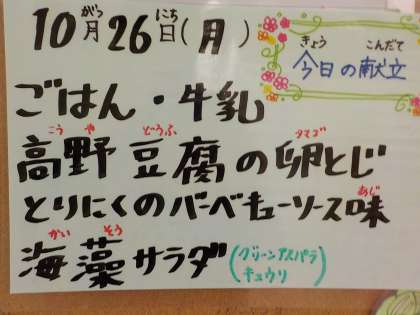 10月26日(月)
がつ にち
きょう こんだて
今日の献立
ごはん・牛乳
こうや どうふ タマゴ
高野豆腐の卵とじ
あじ
とりにくのバーベキューソース味
かいそう
海藻サラダ(グリーンアスパラ
キュウリ)